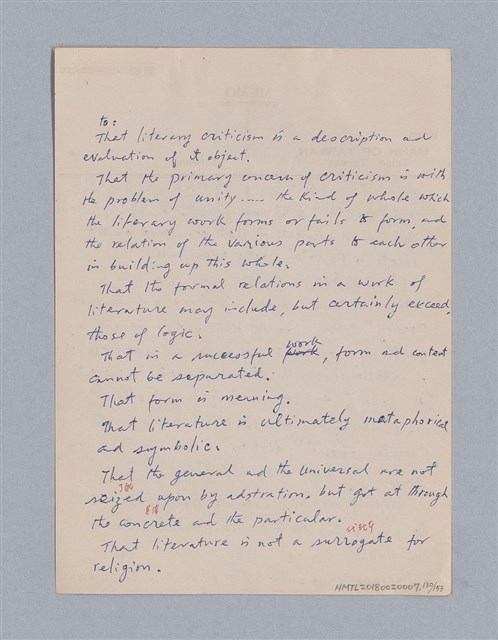 to:
That literary criticism is a description and
evaluation of it object.
That the primary concern of criticism is with
the problem of unity..... the kind of whole which
the literary work forms or fails to form, and
the relation of the various parts to each other
in building up this whole.
That the formal relations in a work of
literature may include, but certainly exceed,
those of logic.
That in a successful work, form ad content
cannot be separated.
That form is meaning.
That literature is ultimately metaphorical
ad symbolic.
That the general ad the universal are not
seized upon by adstration, but got at through
the concrete ad the particular.
That literature is not a surrogate for
religion.
NMTL20180020007.130/153